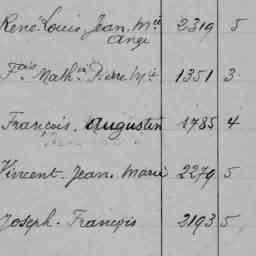 René Louis Jean Mie 2319 5
Ange
Fois Math. Pierre Mie 1351 3
François. Augustin 1785 4
Vincent. Jean. Marie 2279 5
Joseph. François 2193 5